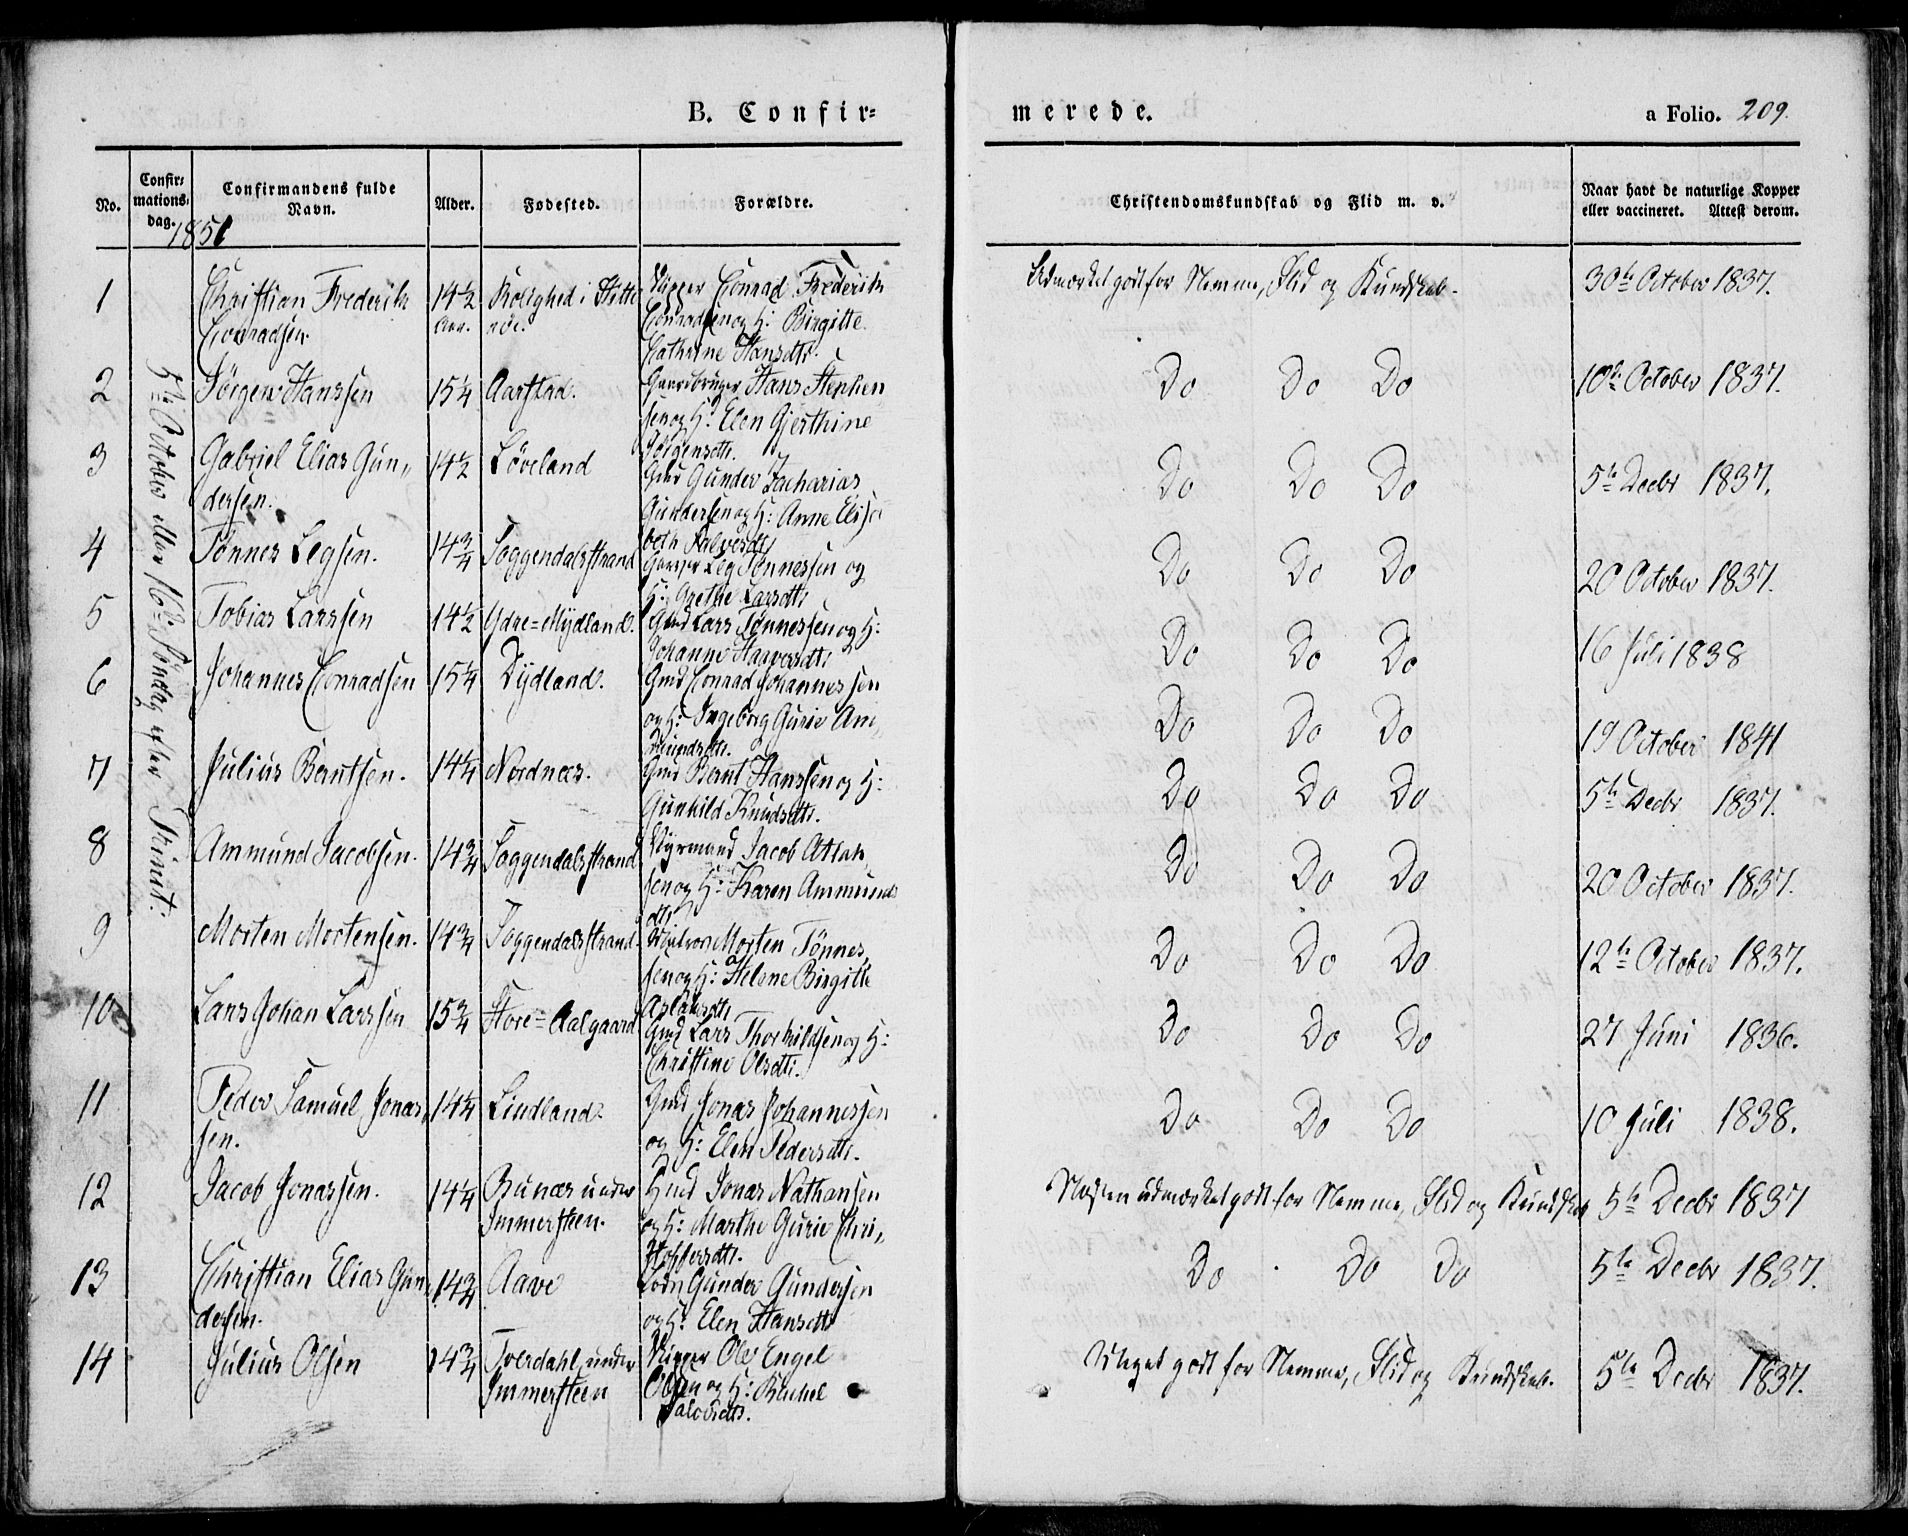 B. Confir=
merede.
a Folio. 209.
No.
Confir=
mations=
dag.
Confirmandens fulde
Navn.
Alder.
Fødested.
Forældre.
Christendomskundskab og Flid m. v.
Naar havt de naturlige Kopper
eller vaccineret. Attest derom.
1851
5te October eller 16de Søndag efter Trinit:
1
Christian Frederik
Conradsen.
14½
Aar.
Rolighed i
Conrad Frederik
Conradsen og H: Birgitte
Cathrine Hansdtr.
Udmærket godt for Nemme, Flid og Kundskab.
30te October 1837.
2
Jørgen Hanssen
15¼
Aarstad.
Gaardbruger Hans Stephen
sen og H: Elen Gjerthine
Jørgensdtr.
Do Do Do
10de October 1837.
3
Gabriel Elias Gun„
dersen.
14½
Løveland
Gmd Gunder Zacharias
Gundersen og H: Anne Elisa
beth Salvesdtr
Do Do Do
5te Decbr 1837.
4
Tønnes Legsen.
14¾
Soggendalsstrand
Leg Tønnessen og
H: Grethe Larsdtr
Do Do Do
20 October 1837.
5
Tobias Larssen
14½
Ydre=Mydland.
Gmd Lars Tønnessen og H:
Johanne Haaversdtr
Do Do Do
16 Juli 1838
6
Johannes Conradsen
15¼
Dydland.
Gmd Conrad Johannessen
og H: Ingeborg Gurie Am„
mundsdtr.
Do Do Do
19 October 1841
7
Julius Berntsen.
14¼
Nordnes.
Gmd Bernt Hanssen og H:
Gunhild Knudsdtr.
Do Do Do
5te Decbr 1837.
8
Ammund Jacobsen.
14¾
Soggendalsstrand
Styrmand Jacob Atlak
sen og H: Karen Ammunds
dtr
Do Do Do
20 October 1837.
9
Morten Mortensen.
14¾
Soggendalsstrand.
Morten Tønnes
sen og H: Helene Birgitte
Aslaksdtr
Do Do Do
12te October 1837.
10
Lars Johan Larssen
15¾
Store=Aalgaard
Gmd Lars Thorkildsen og H:
Christine Olsdtr.
Do Do Do
27 Juni 1836.
11
Peder Samuel Jonas„
sen.
14¼
Lindland.
Gmd Jonas Johannessen
og H: Elen Pedersdtr.
Do Do Do
10 Juli 1838.
12
Jacob Jonassen.
14¼
Runæs under
Immersteen.
Hmd Jonas Nathansen
og H: Marthe Gurie Chri„
stoffersdtr.
Næsten udmærket godt for Nemme, Flid og Kundskab
5te Decbr 1837
13
Christian Elias Gun„
dersen.
14¾
Aave
Gunder Gundersen
og H: Elen Hansdtr
Do Do Do
5te Decbr 1837.
14
Julius Olsen
14¾
Tverdahl under
Immersteen
Ole Engel
Olsen og H: Rachel
Salvesdtr.
Meget godt for Nemme, Flid og Kundskab.
5te Decbr 1837.